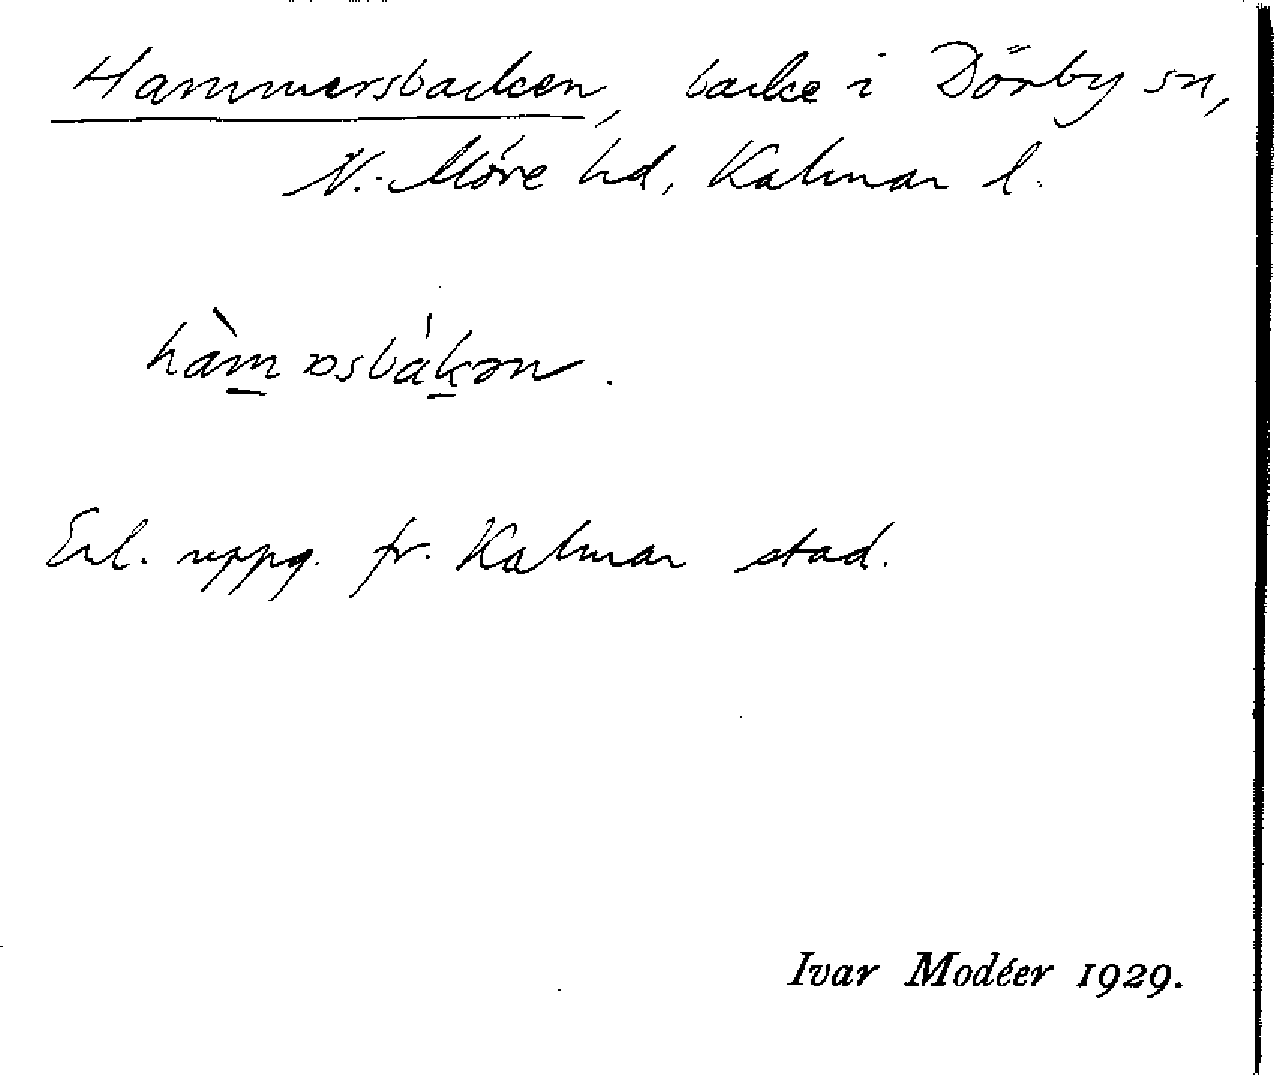 Hammersbacken, backe i Dörby sn,
N. Möre hd, Kalmar l.
hàm̲əsbák̲ən.
Enl. uppg. fr. Kalmar stad.
Ivar Modéer 1929.